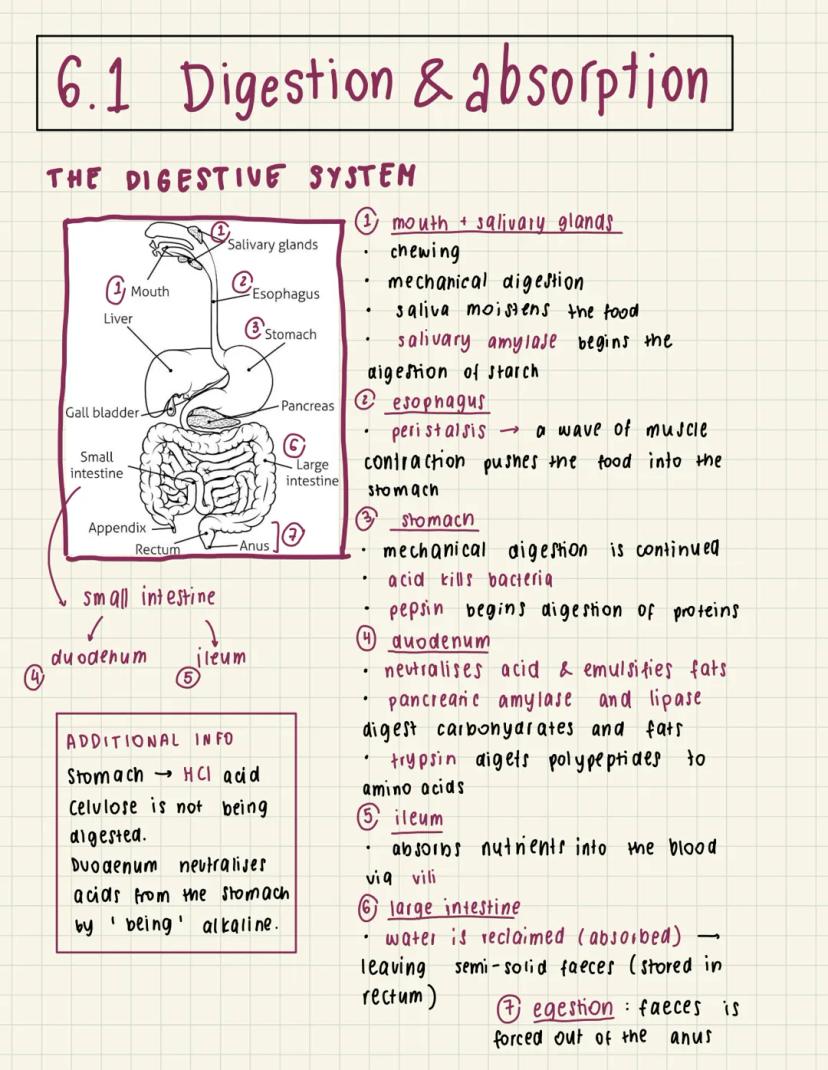 6.1 Digestion & absorption
THE DIGESTIVE SYSTEM
① Salivary glands
① Mouth
② Esophagus
Liver
③ Stomach
Gall bladder
Pancreas
⑥
Small
intestine
Large
intestine
Appendix
Rectum
Anus ] ⑦
small intestine
duodenum
④
ileum
⑤
ADDITIONAL INFO
Stomach → HCl acid
Celulose is not being
digested.
Duodenum neutralises
acids from the stomach
by 'being' alkaline.
① mouth + salivary glands
· chewing
· mechanical digestion
· saliva moistens the food
· salivary amylase begins the
digestion of starch
② esophagus
· peristalsis → a wave of muscle
contraction pushes the food into the
stomach
③ stomach
· mechanical digestion is continued
· acid kills bacteria
· pepsin begins digestion of proteins
④ duodenum
· neutralises acid & emulsifies fats
· pancreatic amylase and lipase
digest carbohydrates and fats
· trypsin digets polypeptides to
amino acids
⑤ ileum
· absorbs nutrients into the blood
via vili
⑥ large intestine
· water is reclaimed (absorbed) →
leaving semi-solid faeces (stored in
rectum)
⑦ egestion : faeces is
forced out of the anus